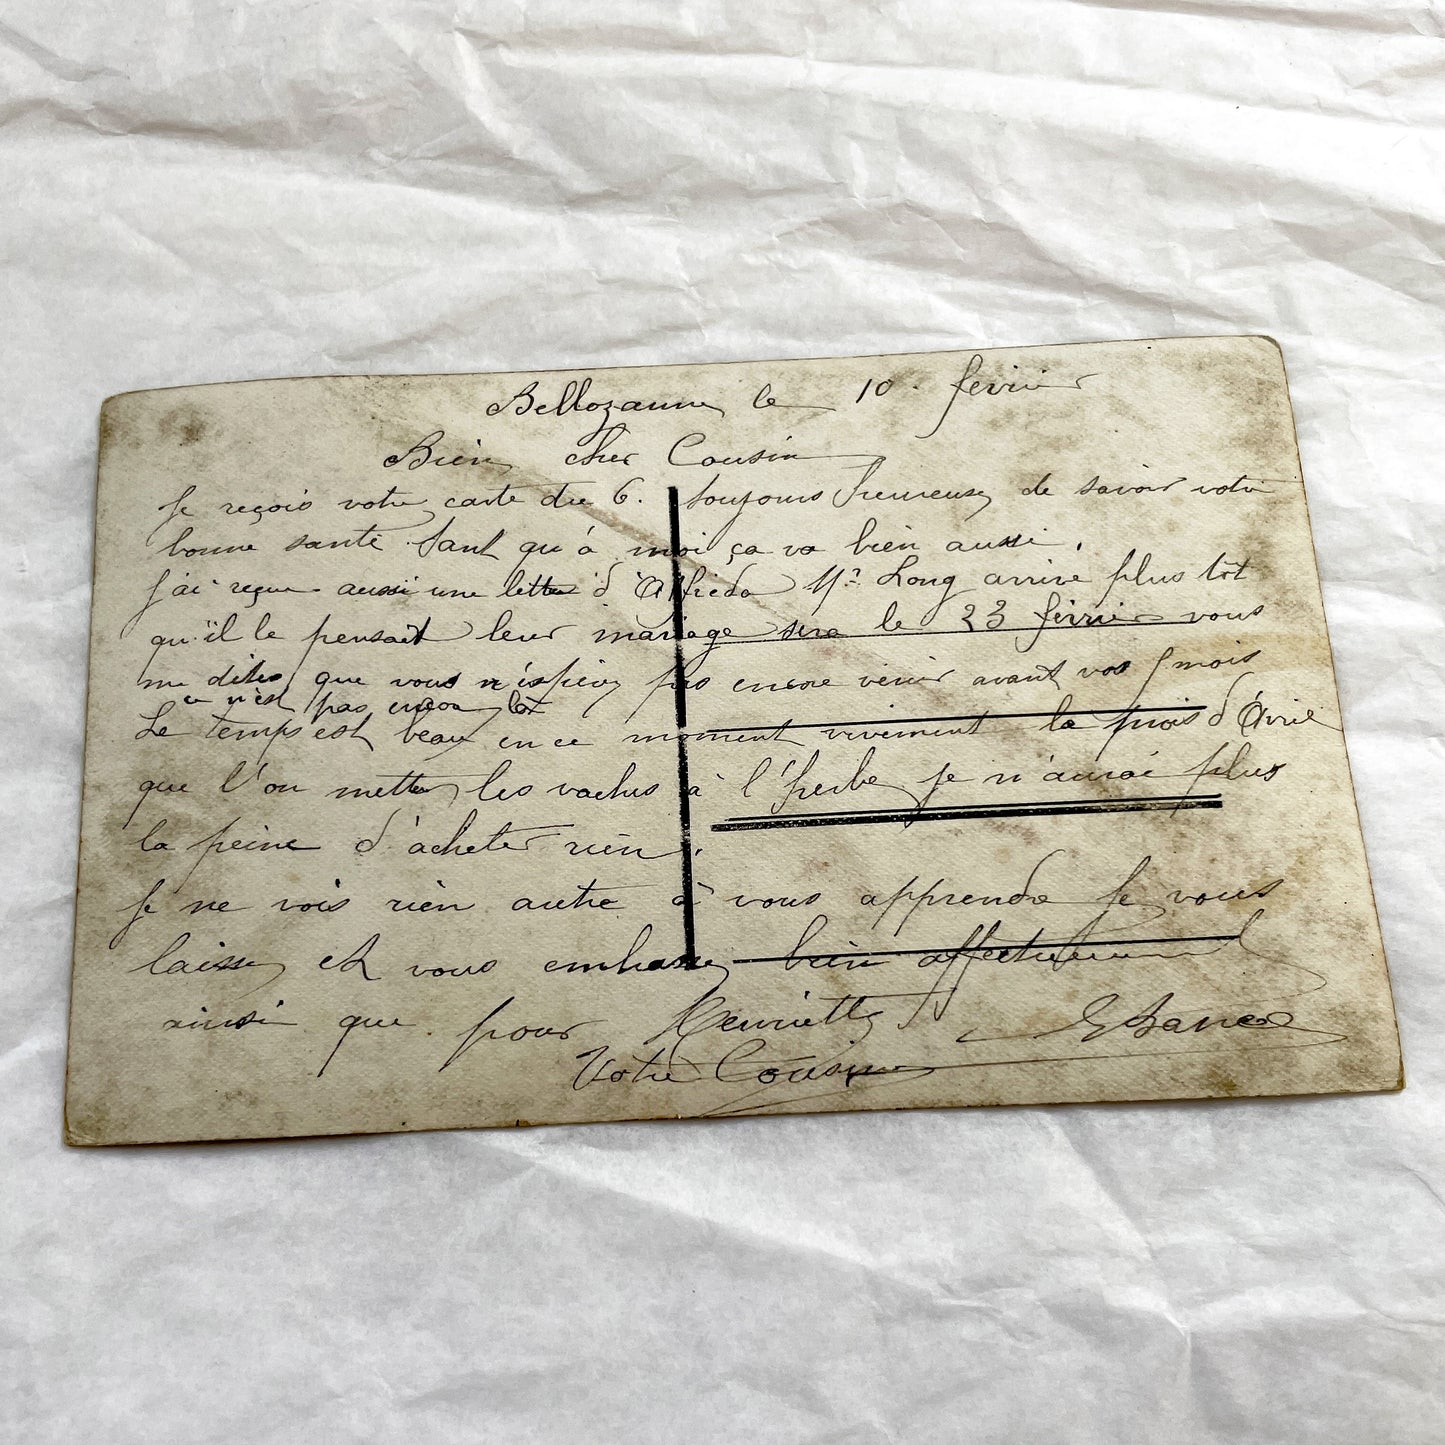 Bellozanne le 10 fevrier
Bien cher Cousin
Je reçois votre carte du 6. toujours heureuse de savoir votre
bonne santé tant qu'à moi ça va bien aussi.
J'ai reçue aussi une lettre d'Alfreda Mr Long arrive plus tôt
qu'il le pensait leur mariage sera le 23 février vous
me dites que vous n'éspérez pas encore venir avant vos mois
ce n'est pas encore la
Le temps est beau en ce moment vivement le mois d'Avril
que l'on mette les vaches à l'herbe je n'aurai plus
la peine d'acheter rien.
Je ne vois rien autre à vous apprendre Je vous
laisse et vous embrasse bien affectueusement
ainsi que pour Henriette
Votre Cousine